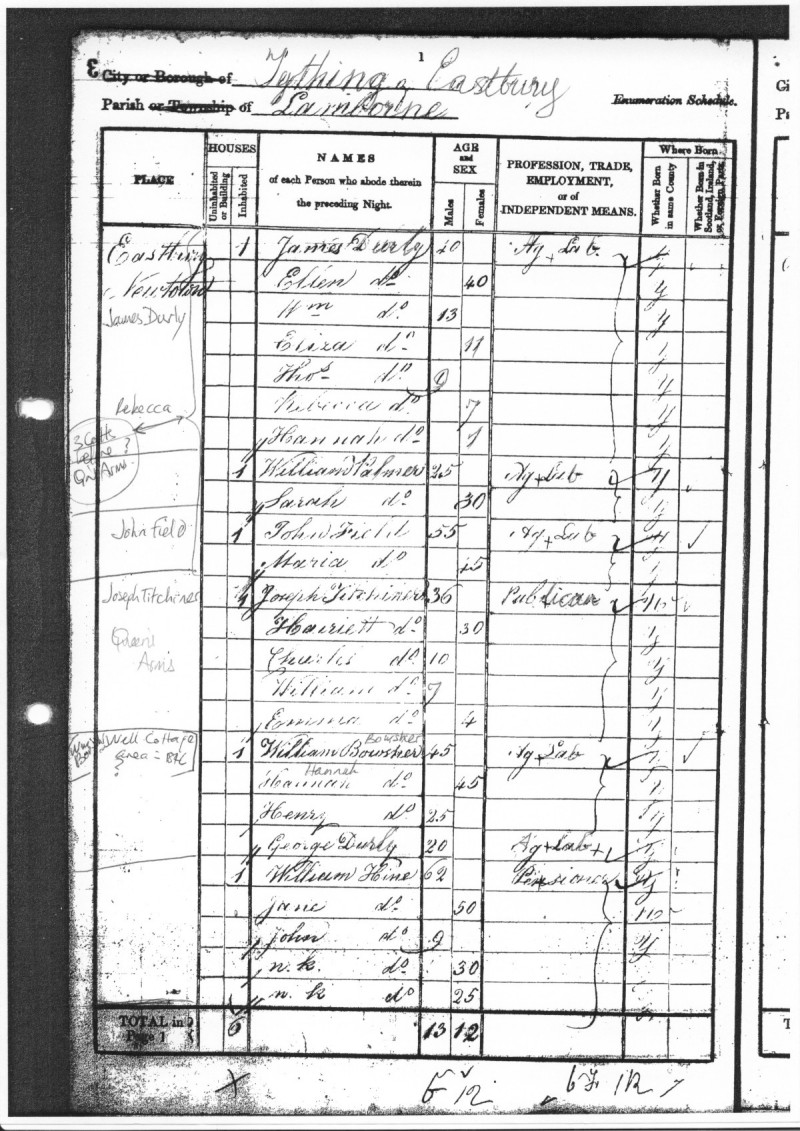 1
3 City or Borough of Tything of Eastbury
Parish or Township of Lamborne
Enumeration Schedule.
PLACE
HOUSES
Uninhabited or Building
Inhabited
NAMES
of each Person who abode therein
the preceding Night.
AGE
and
SEX
Males
Females
PROFESSION, TRADE,
EMPLOYMENT,
or of
INDEPENDENT MEANS.
Where Born
Whether Born in same County
Whether Born in Scotland, Ireland, or Foreign Parts.
Eastbury 1 James Durly 40 Ag. Lab. y
Newtown Ellen do 40 y
James Durly
Wm do 13 y
Eliza do 11 y
Thos do 9 y
Rebecca
Rebecca do 7 y
3 Cotts before Qn Arms ?
Hannah do 1 y
1 William Palmer 25 Ag. Lab y
Sarah do 30 y
John Field
1 John Field 55 Ag. Lab y
Maria do 45 y
Joseph Titchiner
1 Joseph Titchiner 36 Publican no
Queens
Arms
Harriett do 30 y
Charles do 10 y
William do 7 y
Emma do 4 y
Well Cottage
area = 846
?
Bowsher
1 William Bowsher 45 Ag. Lab y
Hannah
Hannah do 45 y
Henry do 25 y
George Durly 20 Ag. Lab y
1 William Hine 62 Pensioner y
Jane do 50 no
John do 9 y
n. k. do 30
n. k do 25
TOTAL in
Page 1
6 13 12